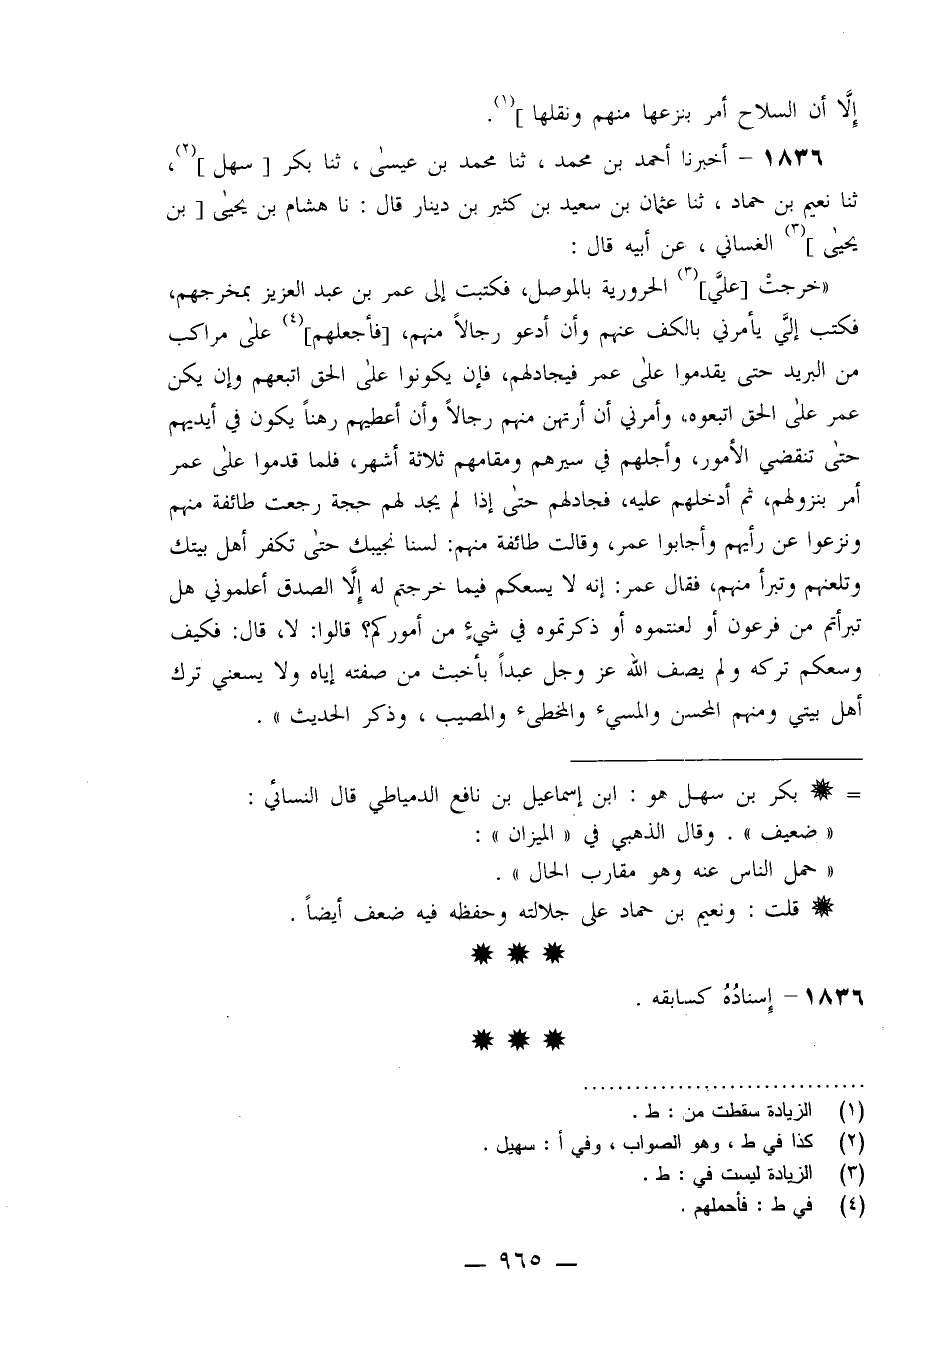 إلَّا أن السلاح أمر بنزعها منهم ونقلها ](١).
١٨٣٦ – أخبرنا أحمد بن محمد ، ثنا محمد بن عيسىٰ ، ثنا بكر [ سهل ](٢)،
ثنا نعيم بن حماد ، ثنا عثمان بن سعيد بن كثير بن دينار قال : نا هشام بن يحيىٰ [ بن
يحيىٰ ](٣) الغساني ، عن أبيه قال :
«خرجتْ [عليَّ](٣) الحرورية بالموصل، فكتبت إلى عمر بن عبد العزيز بمخرجهم،
فكتب إليَّ يأمرني بالكف عنهم وأن أدعو رجالاً منهم، [فأجعلهم](٤) علىٰ مراكب
من البريد حتى يقدموا علىٰ عمر فيجادلهم، فإن يكونوا علىٰ الحق اتبعهم وإن يكن
عمر علىٰ الحق اتبعوه، وأمرني أن أرتهن منهم رجالاً وأن أعطيهم رهناً يكون في أيديهم
حتىٰ تنقضي الأمور، وأجلهم في سيرهم ومقامهم ثلاثة أشهر، فلما قدموا علىٰ عمر
أمر بنزولهم، ثم أدخلهم عليه، فجادلهم حتىٰ إذا لم يجد لهم حجة رجعت طائفة منهم
ونزعوا عن رأيهم وأجابوا عمر، وقالت طائفة منهم: لسنا نجيبك حتىٰ تكفر أهل بيتك
وتلعنهم وتبرأ منهم، فقال عمر: إنه لا يسعكم فيما خرجتم له إلَّا الصدق أعلموني هل
تبرأتم من فرعون أو لعنتموه أو ذكرتموه في شيءٍ من أموركم؟ قالوا: لا، قال: فكيف
وسعكم تركه ولم يصف الله عز وجل عبداً بأخبث من صفته إياه ولا يسعني ترك
أهل بيتي ومنهم المحسن والمسيء والمخطىء والمصيب ، وذكر الحديث » .
= ✹ بكر بن سهل هو : ابن إسماعيل بن نافع الدمياطي قال النسائي :
« ضعيف » . وقال الذهبي في « الميزان » :
« حمل الناس عنه وهو مقارب الحال » .
✹ قلت : ونعيم بن حماد على جلالته وحفظه فيه ضعف أيضاً .
✹ ✹ ✹
١٨٣٦ – إسنادُهُ كسابقه .
✹ ✹ ✹
(١) الزيادة سقطت من : ط .
(٢) كذا في ط ، وهو الصواب ، وفي أ : سهيل .
(٣) الزيادة ليست في : ط .
(٤) في ط : فأحملهم .
— ٩٦٥ —